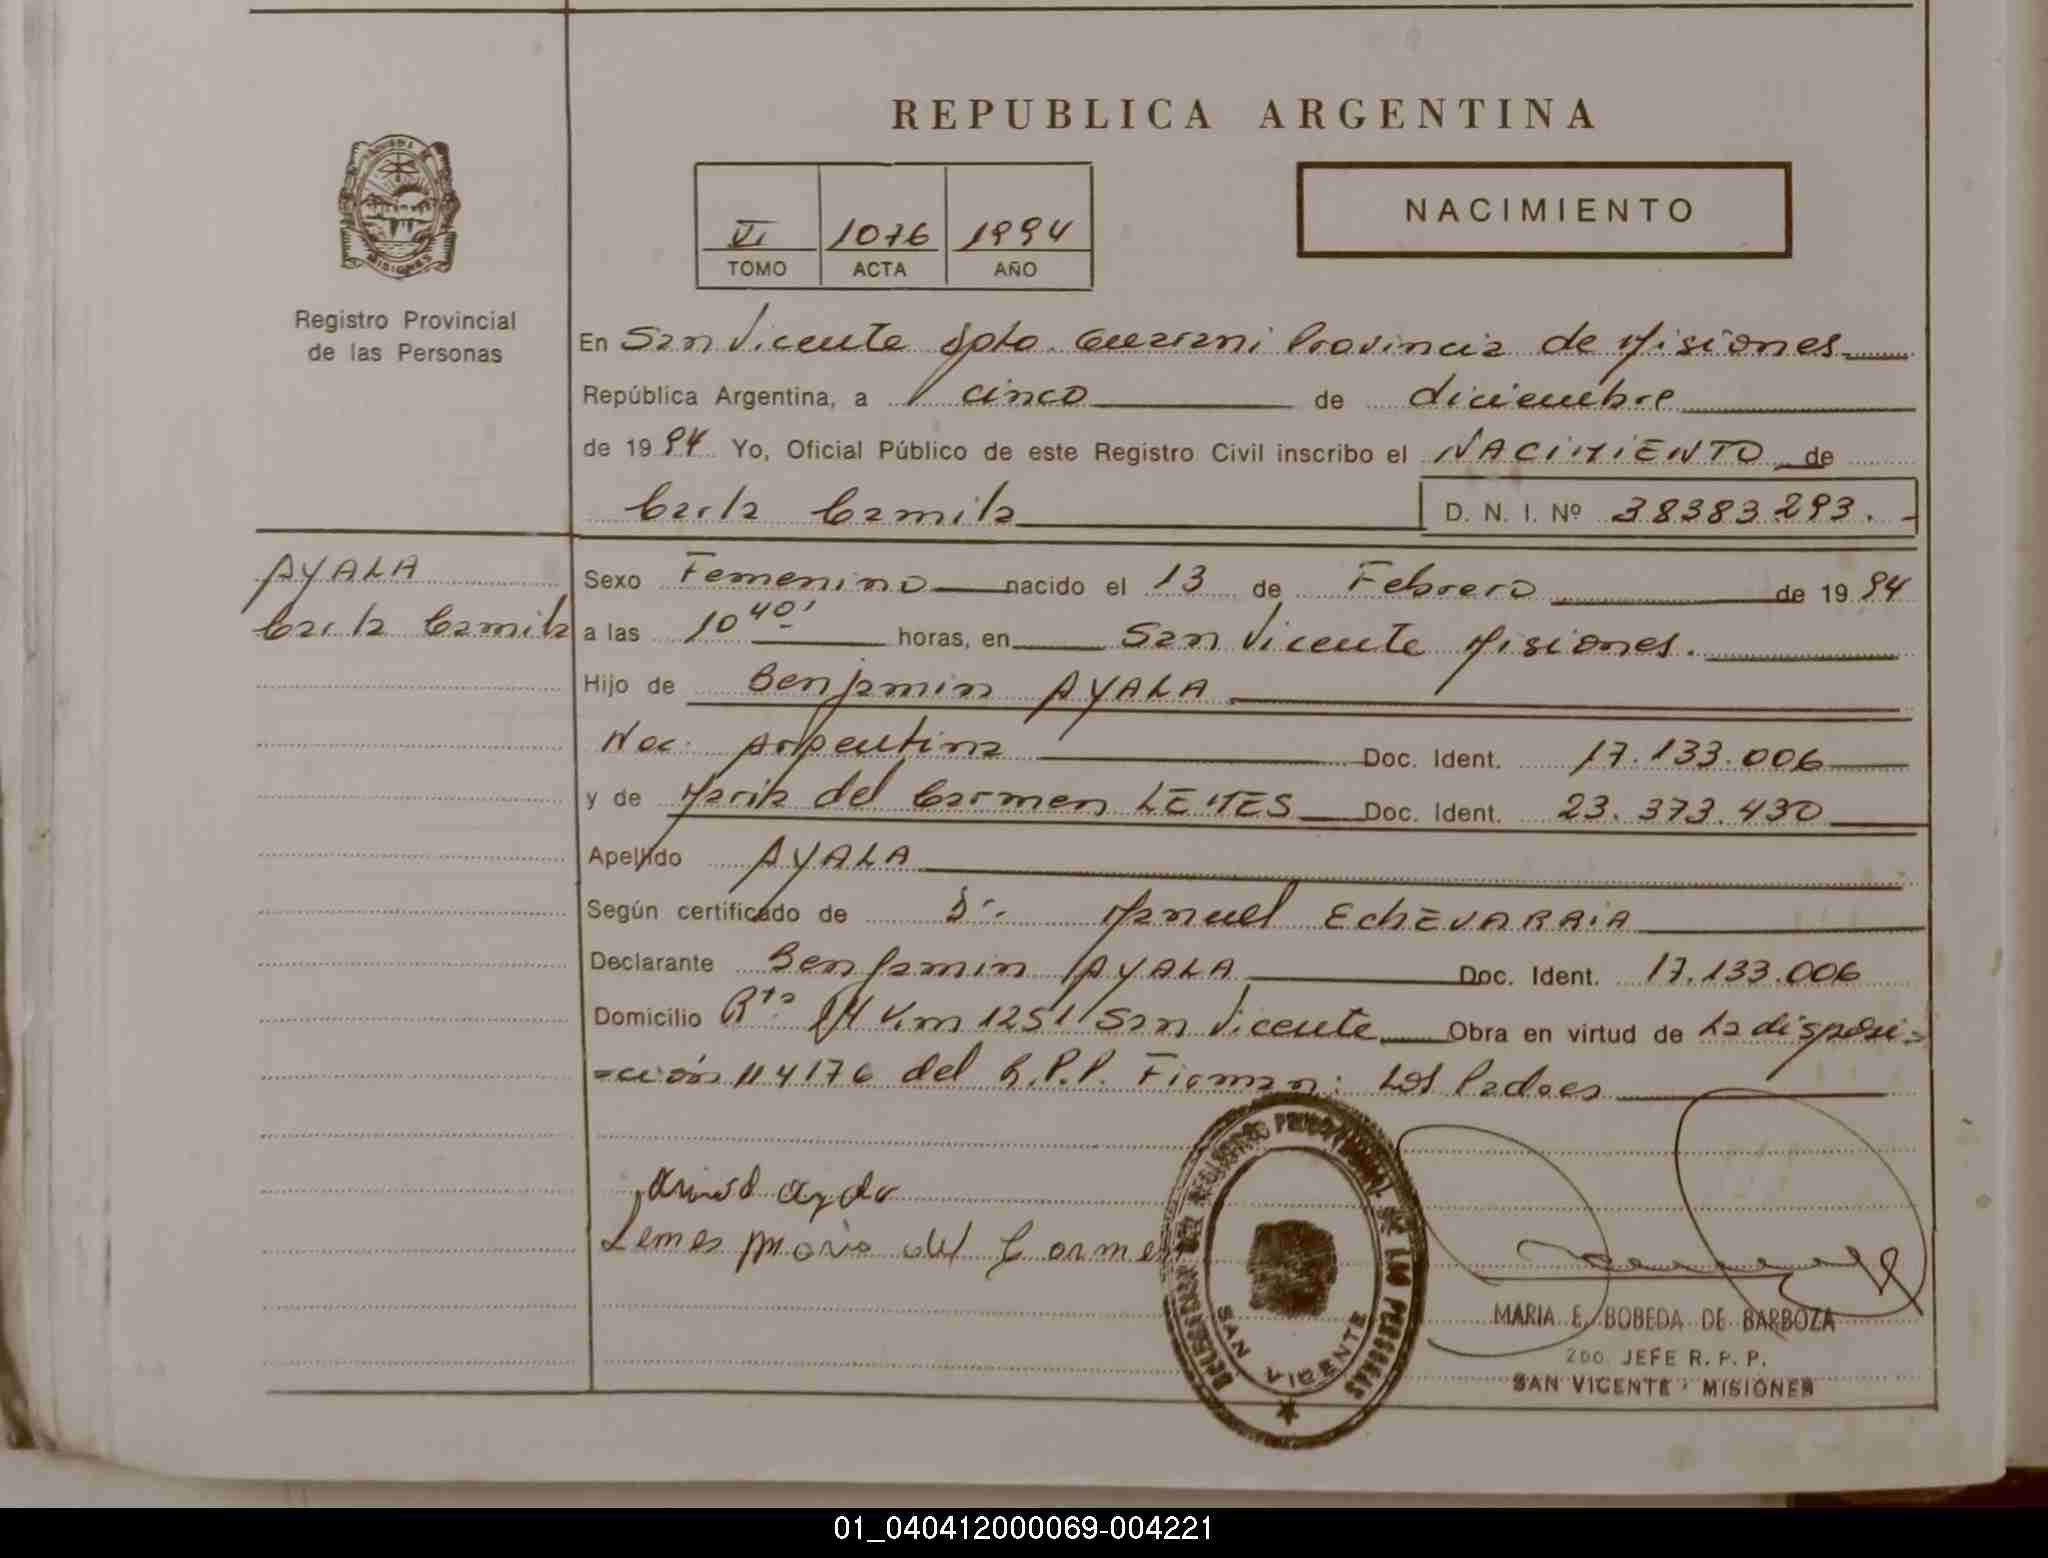 REPUBLICA ARGENTINA
VI 1076 1994
TOMO ACTA AÑO
NACIMIENTO
MISIONES
Registro Provincial
de las Personas
En San Vicente Dpto. Guarani Provincia de Misiones
República Argentina, a cinco de diciembre
de 1994 Yo, Oficial Público de este Registro Civil inscribo el NACIMIENTO de
Carla Camila D. N. I. Nº 38383.293.-
AYALA
Carla Camila
Sexo Femenino nacido el 13 de Febrero de 1994
a las 10 40' horas, en San Vicente Misiones.
Hijo de Benjamin AYALA
Nac. Argentina Doc. Ident. 17.133.006
y de Maria del Carmen LEMES Doc. Ident. 23.373.430
Apellido AYALA
Según certificado de Dr. Manuel EChEVARRIA
Declarante Benjamin AYALA Doc. Ident. 17.133.006
Domicilio Rta 14 Km 1251 San Vicente Obra en virtud de La disposi-
-ción 114176 del R.P.P. Firman: Los Padres
Lemes maria del Carmen
DELEGACION DEL REGISTRO PROVINCIAL DE LAS PERSONAS
SAN VICENTE
MARIA E. BOBEDA DE BARBOZA
2DO. JEFE R. P. P.
SAN VICENTE - MISIONES
01_040412000069-004221